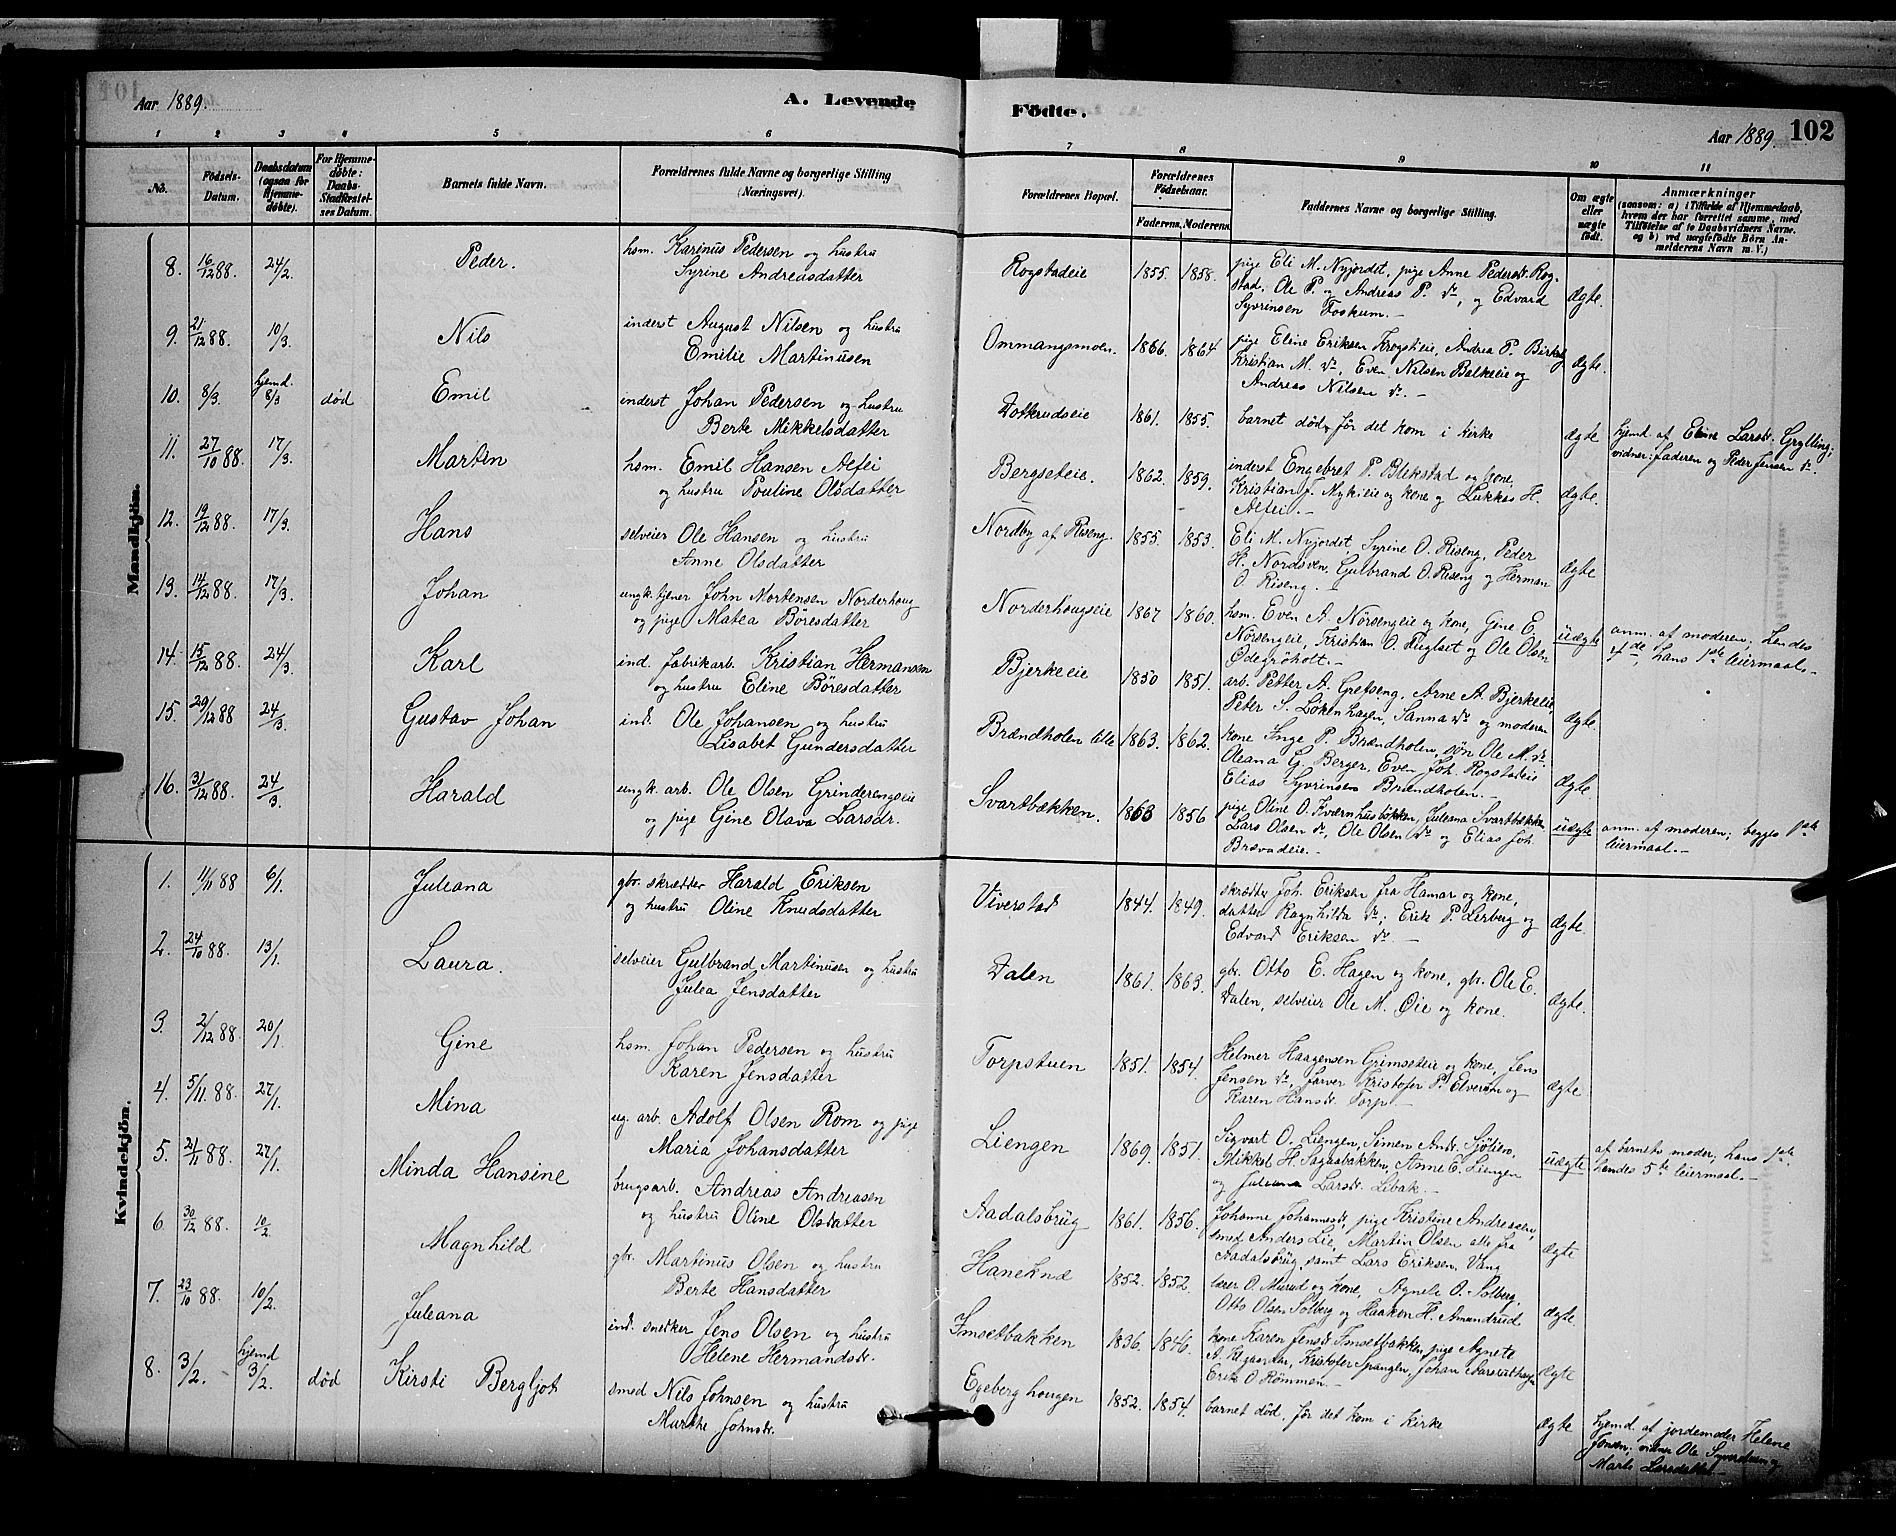 Aar 1889.
A. Levende Födte.
Aar 1889.
102
1 2 3 4 5 6 7 8 9 10 11
No.
Födsels-Datum.
Daabsdatum (ogsaa for Hjemme-döbte).
For Hjemme-döbte: Daabs-Stadfæstel-ses Datum.
Barnets fulde Navn.
Forældrenes fulde Navne og borgerlige Stilling (Næringsvei).
Forældrenes Bopæl.
Forældrenes Födselsaar.
Faderens. Moderens.
Faddernes Navne og borgerlige Stilling.
Om ægte eller uægte födt.
Anmærkninger
(saasom: a) i Tilfælde af Hjemmedaab, hvem der har forrettet samme, med Tilföielse af to Daabsvidners Navne, og b) ved uægtefödte Börn An-melderens Navn m. V.)
Mandkjön.
8. 16/12 88. 24/2. Peder. hsm. Karinus Pedersen og hustru
Syrine Andreasdatter
Rogstadeie 1855. 1858. pige Eli M. Nyjordet, pige Anne Pedersdr. Rog-
stad, Ole P. og Andreas P. do, og Edvard
Syvrinsen Foskum.- Ægte.
9. 21/12 88. 10/3. Nils inderst August Nilsen og hustru
Emilie Martinusen
Ommangsmoen. 1866. 1864 pige Eline Eriksen Krogstieie, Andrea P. Birke
Kristian M. do, Even Nilsen Balkeeie og
Andreas Nilsen do. - ægte.
10. 8/3. hjemd. 8/3 død Emil inderst Johan Pedersen og hustru
Berte Mikkelsdatter
1861. 1855. barnet død, før det kom i kirke ægte hjemd. af Eline Larsdr. Grylling;
vidner: faderen og Peder Jensen do.
11. 27/10 88. 17/3. Martin hsm. Emil Hansen Alfei
og hustru Pouline Olsdatter
Bergseteie. 1862. 1859. inderst Engebret P. Blekstad og kone,
Kristian J. Mykieie og kone og Lukkas H.
Alfei.- ægte.
12. 19/12 88. 17/3. Hans selveier Ole Hansen og hustru
Anne Olsdatter
Nordby af Riseng. 1855. 1853. Eli M. Nyjordet, Syrine O. Riseng, Peder
H. Nordsven, Gulbrand O. Riseng og Herman
O. Riseng. - ægte
13. 14/12 88. 17/3. Johan ungk. tjener John Mortensen Norderhoug
og pige Matea Böresdatter
Norderhougseie 1867 1860. hsm. Even A. Norsengeie og kone, Gine E.
Norsengeie, Kristian O. Fuglset og Ole Olsen
Ödegröholt.- uægte anm. af moderen, hendes
4de, hans 1ste leiermaal.-
14. 15/12 88. 24/3. Karl ind. fabrikarb. Kristian Hermansen
og hustru Eline Böresdatter
Bjerkeeie 1850 1851. arb. Petter A. Grefseng, Arne A. Bjerkeeie
Peter S. Löken Hagen, Sanna do og moderen ægte.
15. 29/12 88 24/3. Gustav Johan ind. Ole Johansen og hustru
Lisabet Gundersdatter
Brændholen lille 1863. 1862. kone Inge P. Brændholen, sön Ole M. do.
Oleana G. Berger, Even Joh. Rogstadeie
Elias Syvrinsen Brændholen. - Ægte.
16. 31/12 88. 24/3. Harald ungk. arb. Ole Olsen Grinderengseie
og pige Gine Olava Larsdr.
Svartbækken. 1863 1856 pige Oline O. Kværnhusbakken, Julerna Svartbækken
Lars Olsen do, Ole Olsen do og Elias Joh.
Brævadeie.- uægte anm. af moderen; begges 1ste
leiermaal.-
Kvindekjön.
1. 11/11 88 6/1. Juleana gbr. skrædder Harald Eriksen
og hustru Oline Knudsdatter
Viverstad 1844. 1849. skrædder Joh. Eriksen fra Hamar og kone,
datter Ragnhilda do; Erik P. Lerberg og
Edvard Eriksen do - ægte.
2. 24/10 88. 13/1. Laura. selveier Gulbrand Martinusen og hustru
Julea Jensdatter
Dalen 1861. 1863. gbr. Otto E. Hagen og kone, gbr. Ole E.
Dalen, selveier Ole M. Øie og kone. ægte.
3. 2/12 88. 20/1. Gine hsm. Johan Pedersen og hustru
Karen Jensdatter
Torpstuen 1851. 1854. Helmer Haagensen Grimseteie og kone, Jens
Jensen do, farver Kristofer P. Elverum og
Karen Hansdr. Torp. - ægte.
4. 5/11. 88. 27/1. Mina ug. arb. Adolf Olsen Rom og pige
Maria Johansdatter
Liengen 1869. 1851. Sigvart O. Liengen, Simen Andr. Sjölien,
Mikkel H. Sagaabakken, Anne E. Liengen
og Juleana Larsdr. Libak.- uægte af barnets moder; hans 1ste,
hendes 5te leiermaal.-
5. 21/11 88. 27/1. Minda Hansine brugsarb. Andreas Andreasen
og hustru Oline Olsdatter
Aadalsbrug 1861. 1856. Johanne Johannesdr., pige Kristine Andreasen,
smed Anders Lie, Martin Olsen alle fra
Aadalsbrug samt Lars Eriksen, Vang ægte
6. 30/12 88. 10/2. Magnhild gbr. Martinus Olsen og hustru
Berte Hansdatter
Hanekne 1852. 1852. lærer O. Murud og kone, Agnete O. Solberg,
Otto Olsen Solberg og Haaken H. Amundrud ægte.
7. 23/10 88. 10/2. Juleana ind. snedker Jens Olsen og hustru
Helene Hermandsdr.
Imsetbakken 1836. 1846. kone Karen Jensdr. Imsetbakken, pige Agnete
Kristofer Spangen, Johan
Erik O. Römmen.- ægte
8. 3/2. hjemd 3/2. död Kirsti Bergljot smed Nils Johnsen og hustru
Marthe Johnsdr.
Egeberg hougen 1852. 1854. barnet död, för det kom i kirke ægte hjemd. af jordemoder Helene
Jonsen; vidner Ole Syversteen og
Marte Larsdatter.-